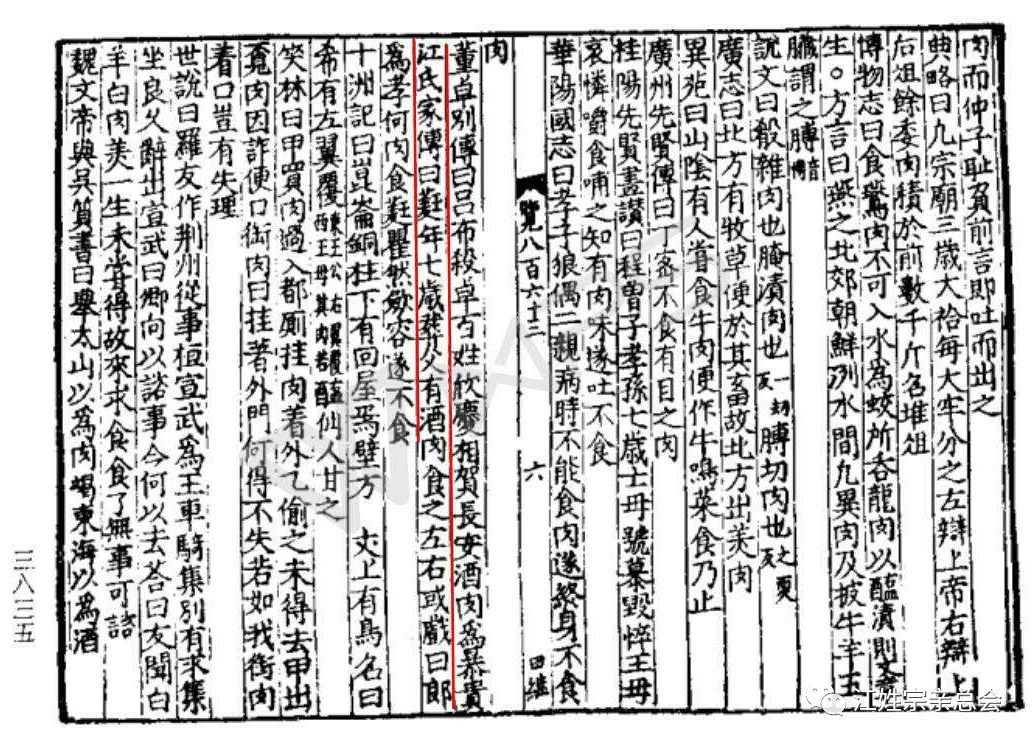 肉而仲子耻負前言即吐而出之
典略曰凡宗廟三歲大祫每大牢分之左辯上帝右辯上
后祖餘委肉積於前數千斤名堆俎
博物志曰食鷰肉不可入水為蛟所吞龍肉以醢漬則文章
生○方言曰燕之北郊朝鮮洌水間凡異肉及披牛羊五
臟謂之膊音
說文曰殽雜肉也腌漬肉也 一切膊切肉也之
廣志曰北方有牧草便於其畜故北方出美肉
異苑曰山陰有人嘗食牛肉便作牛鳴菜食乃止
廣州先賢傳曰丁密不食有目之肉
桂陽先賢畫讃曰程曾子孝孫七歲亡母號慕毀悴王母
哀憐嚼食哺之知有肉味遂吐不食
華陽國志曰孝子狼偶二親病時不能食肉遂終身不食
覽八百六十三 六 田繼
肉
董卓別傳曰呂布殺卓百姓欣慶相賀長安酒肉為暴貴
江氏家傳曰蕤年七歲葬父有酒肉食之左右或戲曰郎
為孝何肉食蕤瞿然歛容遂不食
十洲記曰崑崙銅柱下有回屋焉壁方 丈上有鳥名曰
希有左翼覆東王公右翼覆西王母其肉若醢仙人甘之
笑林曰甲買肉過入都厠挂肉着外乙偷之未得去甲出
覔肉因詐便口銜肉曰挂著外門何得不失若如我銜肉
着口豈有失理
世說曰羅友作荆州從事桓宣武為王車騎集別有求集
坐良久辭出宣武曰卿向以諮事今何以去荅曰友聞白
羊白肉美一生未嘗得故來求食食了無事可諮
魏文帝與吳質書曰舉太山以為肉竭東海以為酒
三八三五
江姓宗亲总会